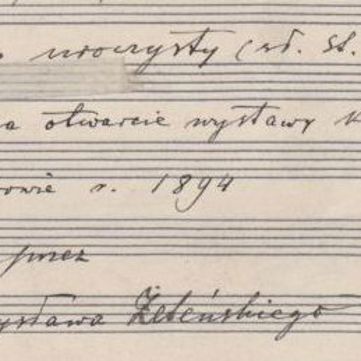 uroczysty (sł. St.
a otwarcie wystawy K
owie r. 1894
przez
ysława Żeleńskiego